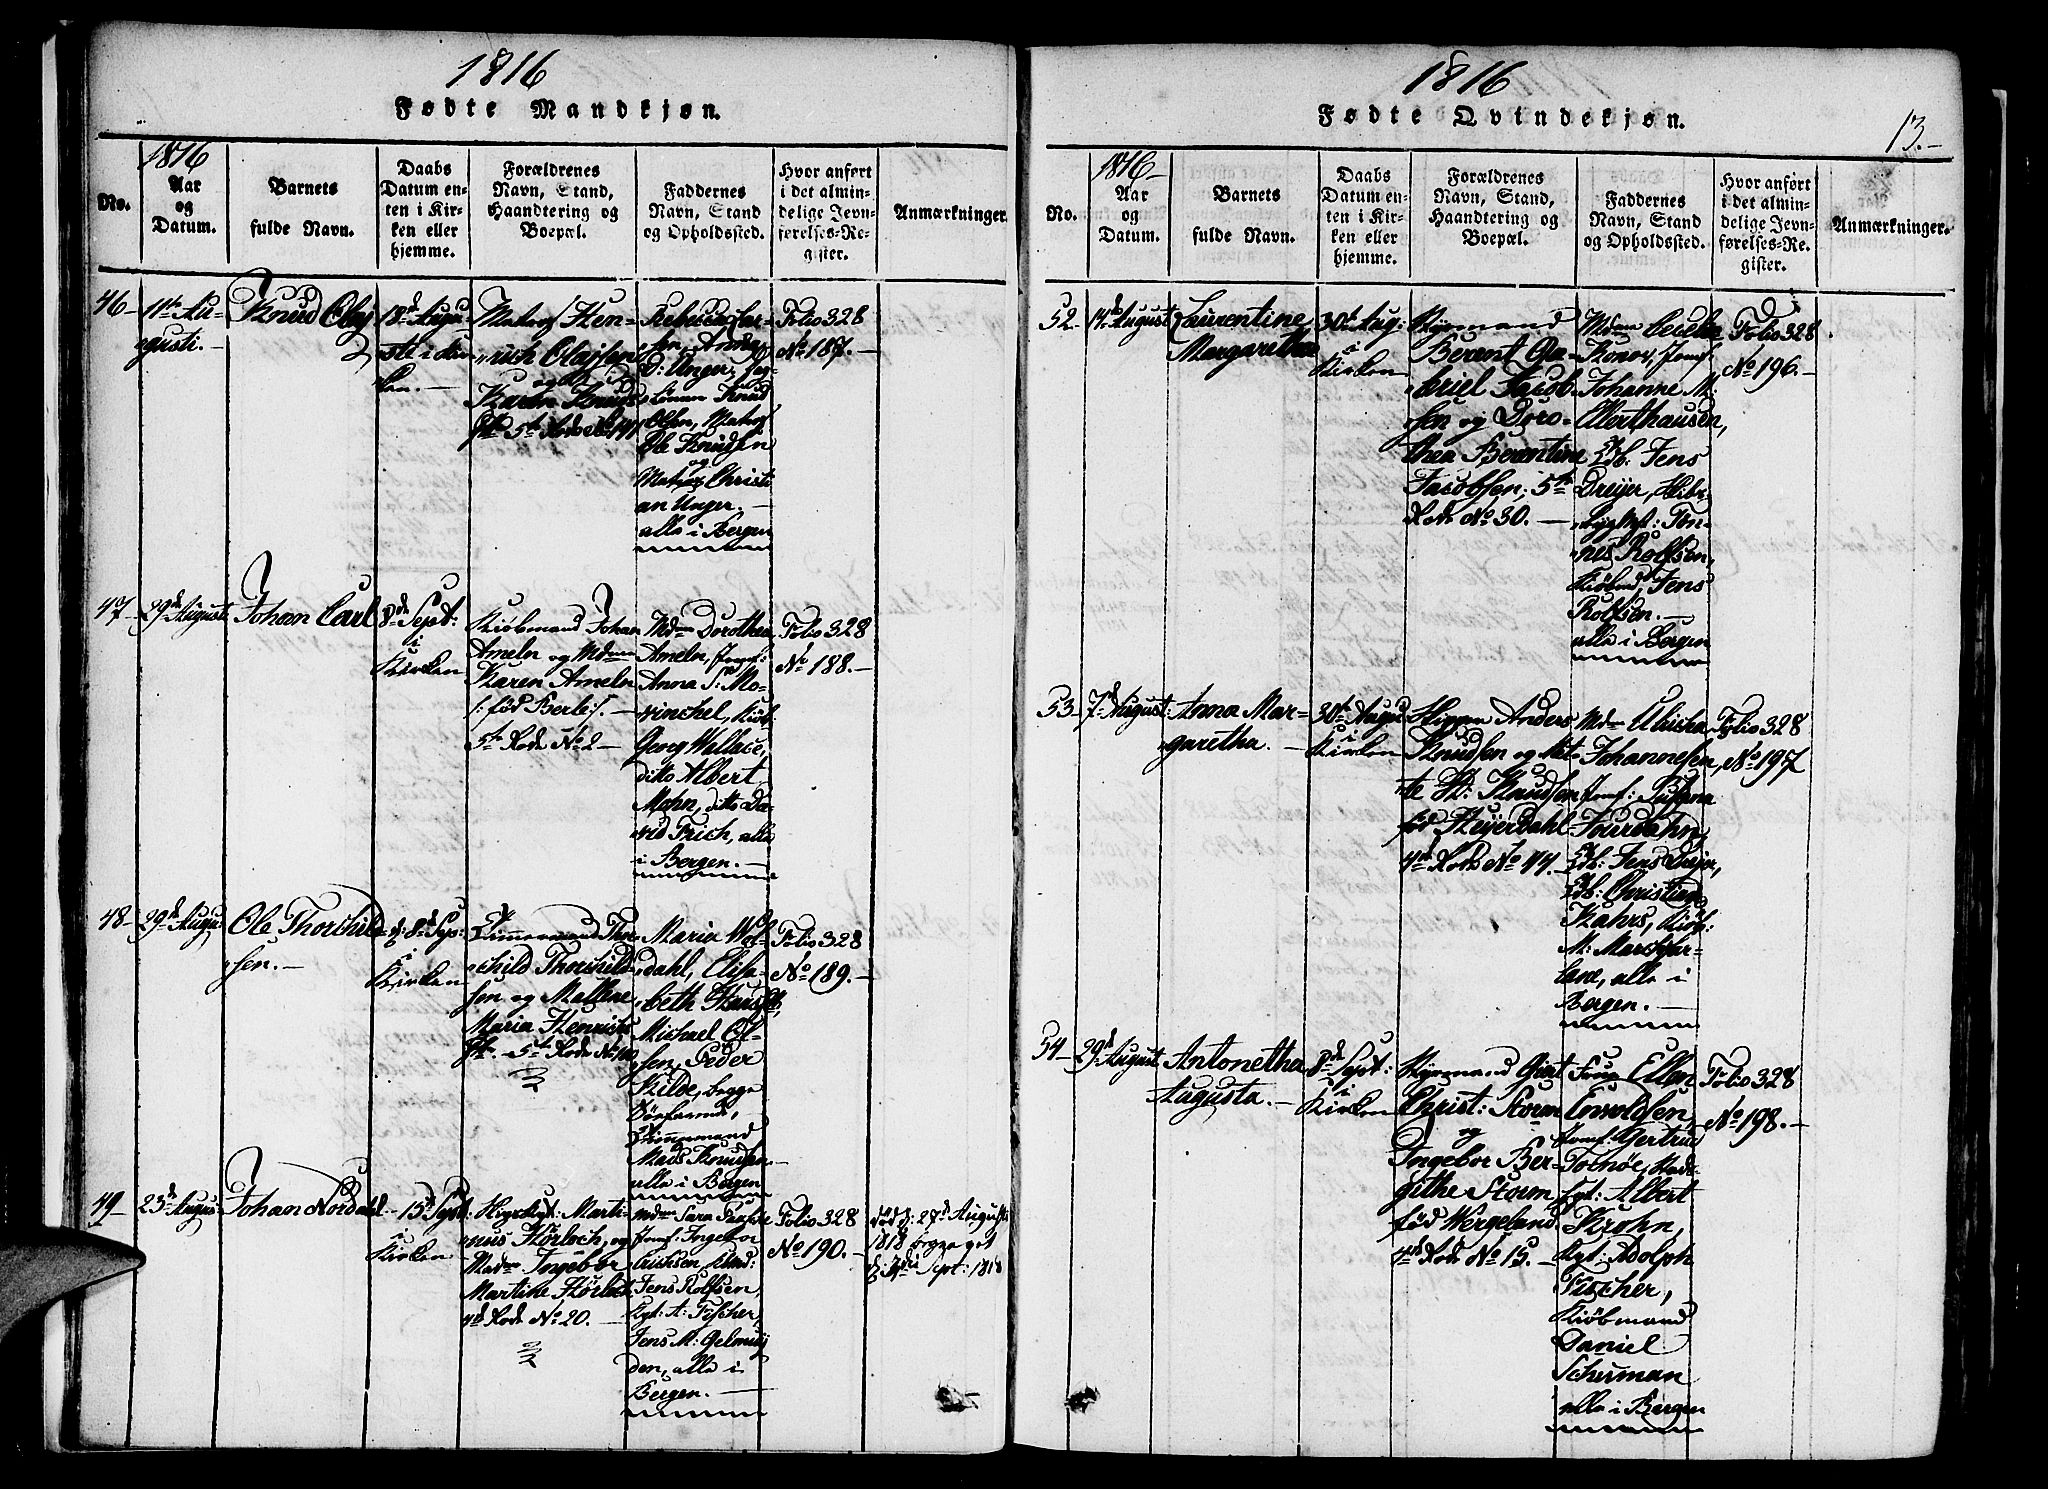 1816
Fødte Mandkjøn.
1816
No.
Aar
og
Datum.
Barnets
fulde Navn.
Daabs
Datum en-
ten i Kir-
ken eller
hjemme.
Forældrenes
Navn, Stand,
Haandtering og
Boepæl.
Faddernes
Navn, Stand
og Opholdssted.
Hvor anført
i det almin-
delige Jevn-
førelses-Re-
gister.
Anmærkninger.
46
11te Au-
gusti.
Knud Olaj
18d Augu-
sti i Kir-
ken.
Matros Hen-
rich Olajsen
og
Karen Knuds
5te Rode No
Anna
D: Unger,
Knud
Olsen, Matros
Ole Knudsen
og
Matros Christi
an Unger.
alle i Bergen
Folio 328
No 187.
47
29d August
Johan Carl
8de Sept:
i
Kirken
Kiøbmand Johan
Ameln og Mdme
Karen Ameln
/: fød Berle :/.
5te Rode No 2
Mdme Dorothea
Ameln, Jomf:
Anna S: Mo-
winchel, Kiøb
Georg Wallace,
ditto Albert
Mohn, ditto Da-
vid Frich, alle
i Bergen.
Folio 328
No 188.
48
29d Augu
Ole Thorchild-
sen.
d: 8d Sep:
i
Kirken
Timmermand Thor-
child Thorchild-
sen og Mallene
Maria Henrichs
5te Rode No
Maria Wol-
dahl, Elisa-
beth
Michael Ol-
sen, Peder
Kilde, begge
Tømmermand
Mads Knudsen
alle i Bergen
Folio 328
No 189.
49
23d Augus
Johan Nordahl
15d Sept
i
Kirken
Marti-
nus Hørloch, og
Madme Ingebor
Martine Hørloch
4d Rode No 20.
Mdme Sara
Jomf: Ingebor
Erichsen,
Jens Rolfsen,
Kgt: A: Fischer,
Jens M: Gelmuy
den, alle i
Bergen.
Folio 328
No 190.
død d: 27d August
1818
Sept: 1818
1816
Fødte Qvindekjøn.
13.
1816
No.
Aar
og
Datum.
Barnets
fulde Navn.
Daabs
Datum en-
ten i Kir-
ken eller
hjemme.
Forældrenes
Navn, Stand,
Haandtering og
Boepæl.
Faddernes
Navn, Stand
og Opholdssted.
Hvor anført
i det almin-
delige Jevn-
førelses-Re-
gister.
Anmærkninger.
52
14d August
Laurentine
Margaretha
30d Aug:
i
Kirken
Styrmand
Berent Ga-
briel Jacob-
sen og Doro-
thea Berentine
Jacobsen, 5te
Rode No 30.
Mdme Cecilia
Konow, Jomf:
Johanne M:
Ellerthausen,
Jens
Dreyer,
Tøn-
nes Rolfsen,
Kiøbmd, Jens
Rolfsen.
alle i Bergen
Folio 328
No 196.
53
7d August
Anna Mar-
garetha.
30d Augu
i
Kirken
Skipper Anders
Knudsen og Met-
te Hd: Knudsen
fød Heyerdahl
4d Rode No 44.
Mdme Ulricha
Johannesen,
Jomf:
Jourdahn,
Jens Dreyer,
Christian
Kahrs, Kiøb:
alle i
Bergen.
Folio 328
No 197
54
29d August
Antonetha
Augusta.
8de Sept:
i
Kirken
Styrmand Giert
Christ: Storm
og
Ingebor Ber-
githe Storm,
fød Wergeland.
4d Rode No 15.
Frue Ellen
Enwoldsen,
Jomf: Gertrud
Tornøe,
Kgt: Albert
Krohn,
Kgt: Adolph
Vischer,
Kiøbmand
Daniel
Schuman
alle i Bergen
Folio 328
No 198.